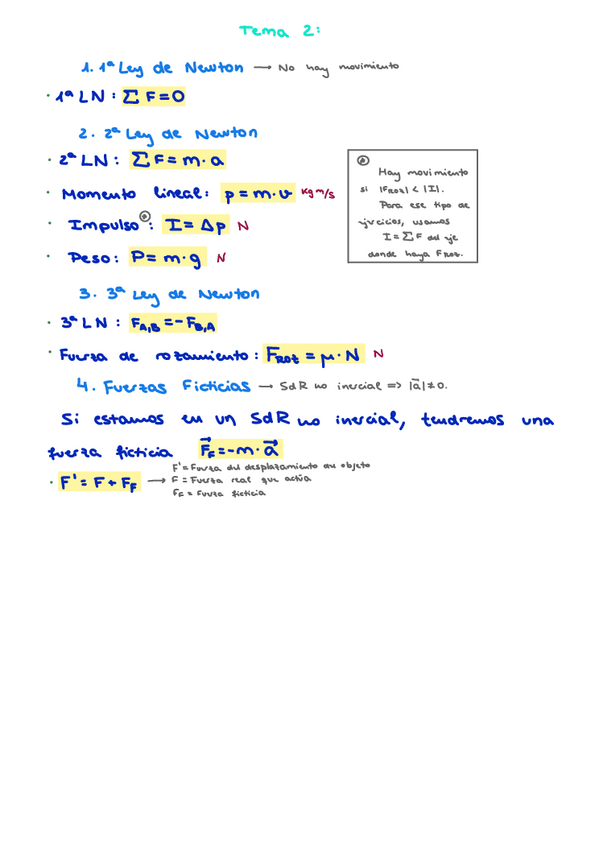 Tema 2:
1. 1ª Ley de Newton → No hay movimiento
· 1ª LN: ∑ F = 0
2. 2ª Ley de Newton
· 2ª LN: ∑ F = m · a
· Momento lineal: p = m · v kg m/s
· Impulso⊛: I = Δp N
· Peso: P = m · g N
⊛
Hay movimiento
si |FROZ| < |I|.
Para ese tipo de
ejercicios, usamos
I = ∑ F del eje
donde haya FROZ.
3. 3ª Ley de Newton
· 3ª LN: FA,B = -FB,A
· Fuerza de rozamiento: FROZ = μ · N N
4. Fuerzas Ficticias → SdR no inercial => |a⃗| ≠ 0.
Si estamos en un SdR no inercial, tendremos una
fuerza ficticia F⃗F = -m · a⃗
· F' = F + FF → F' = Fuerza del desplazamiento del objeto
F = Fuerza real que actúa
FF = Fuerza ficticia